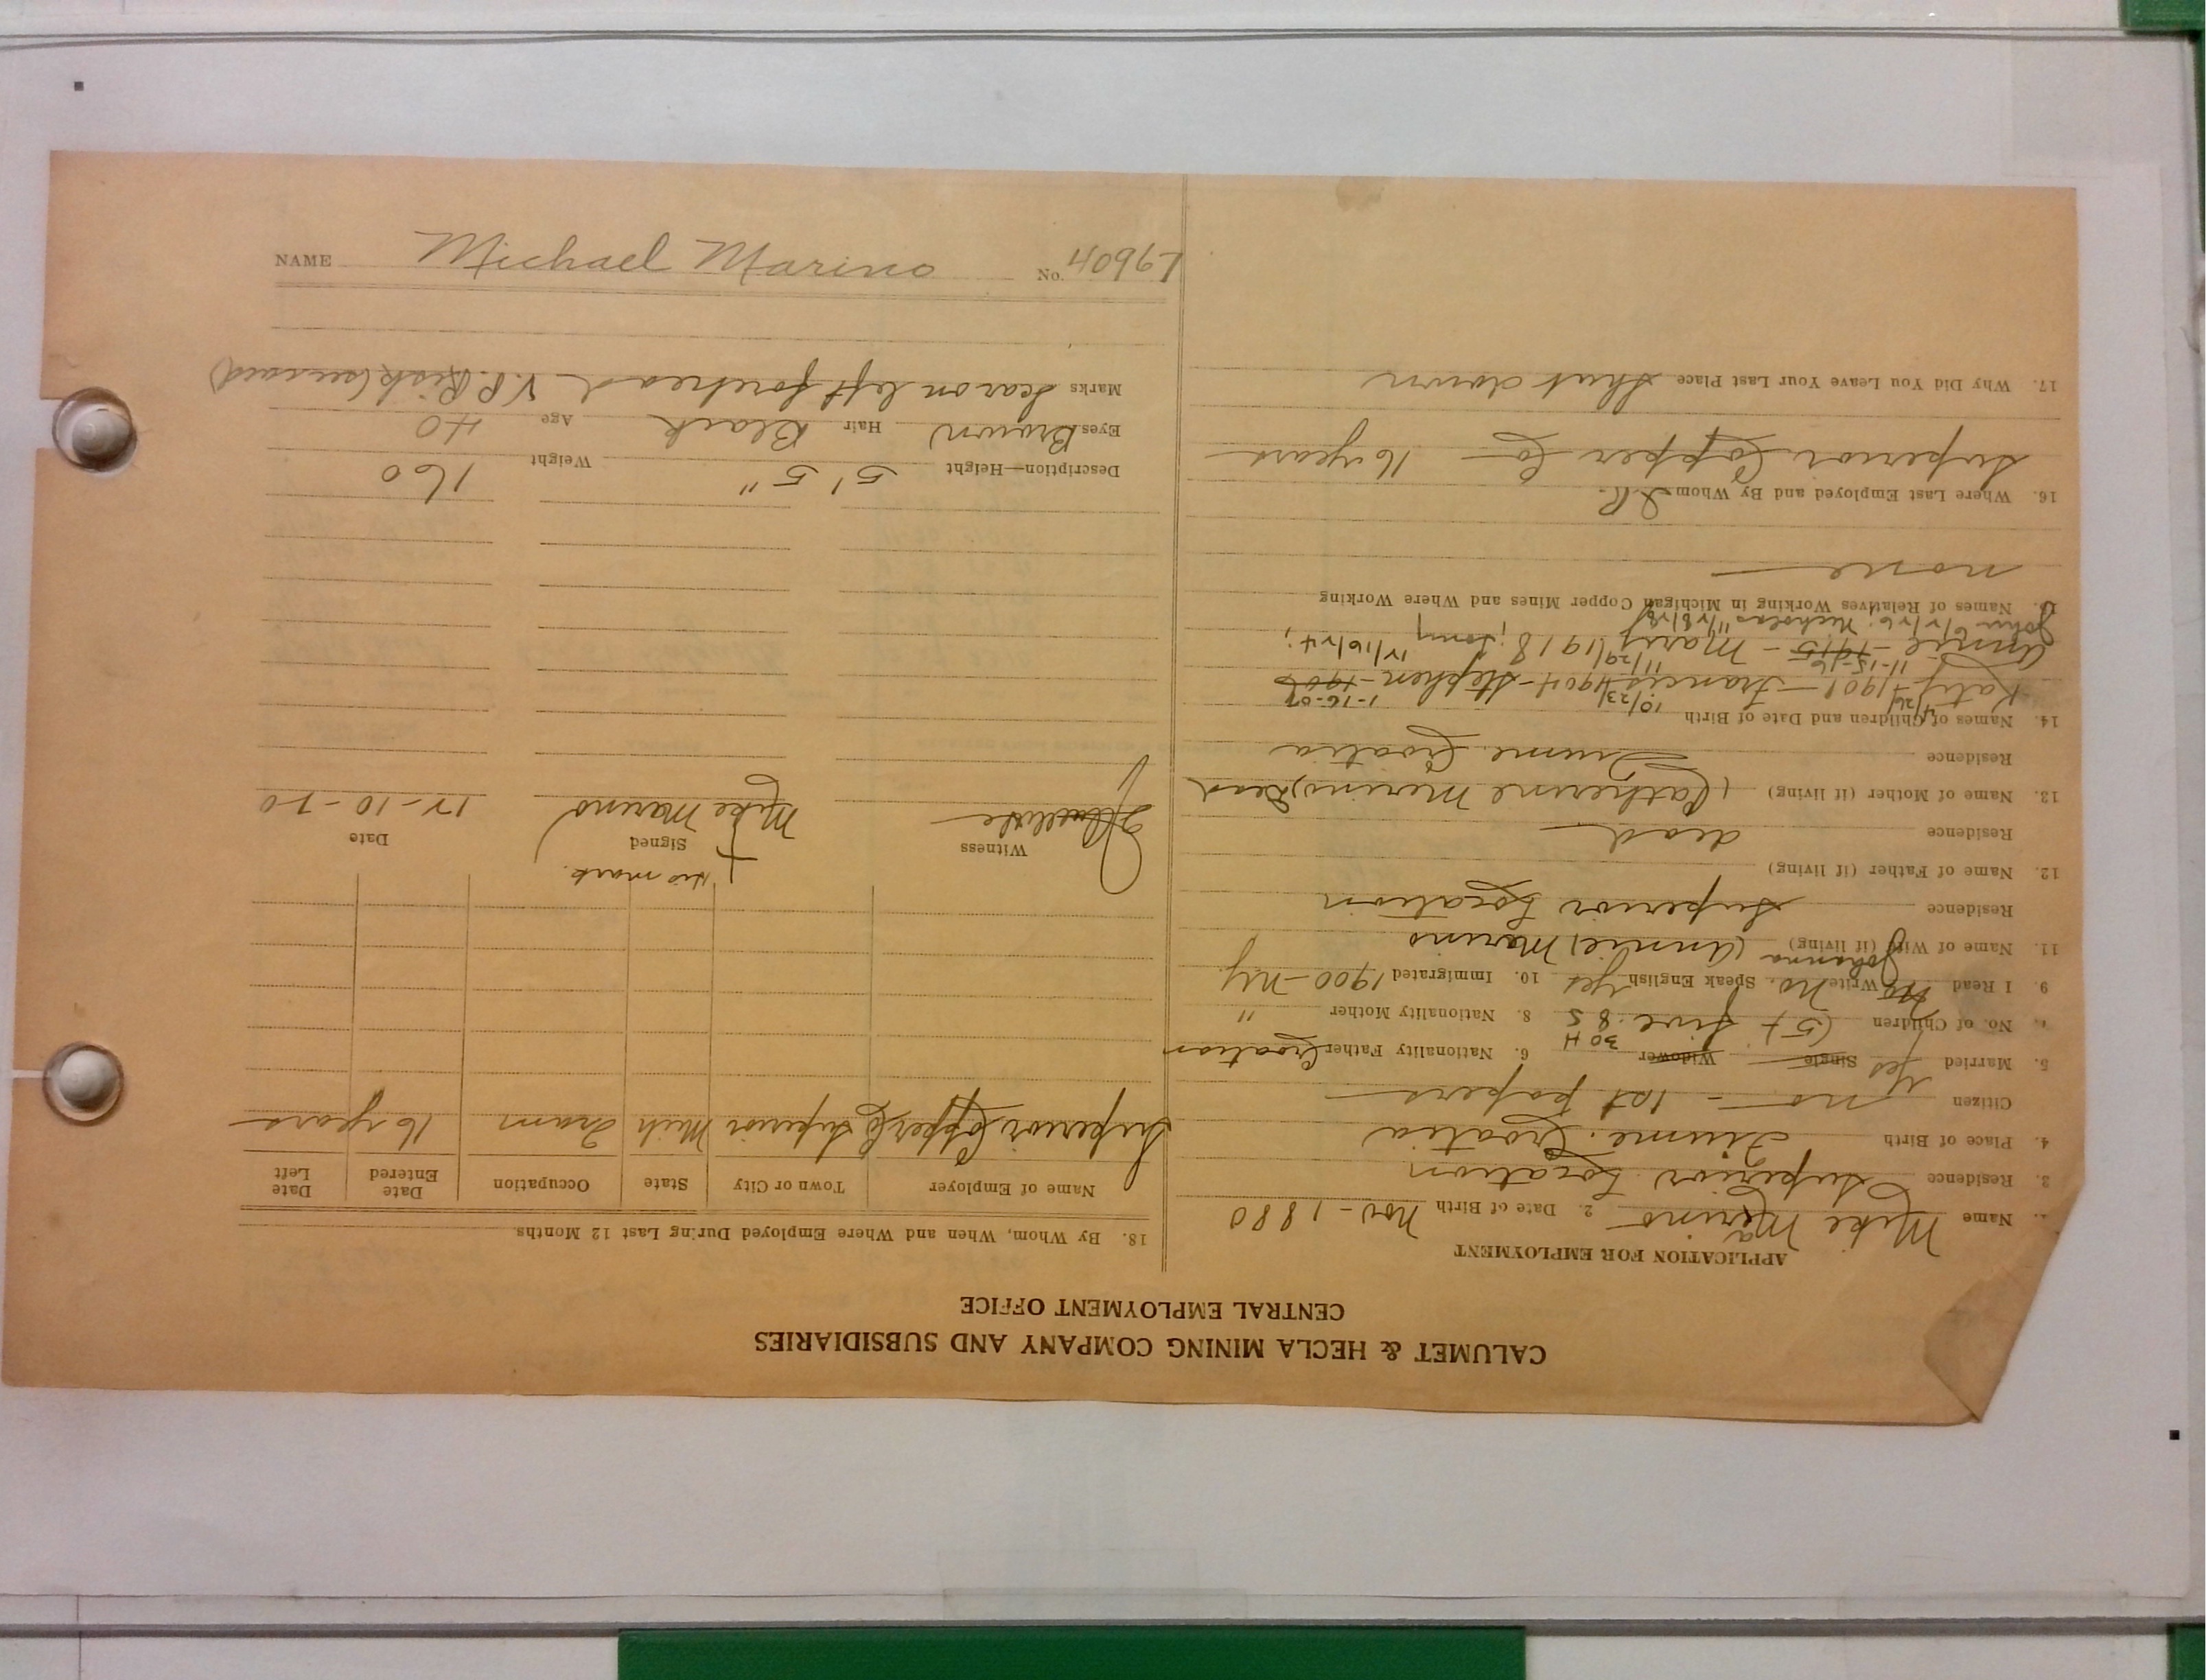 CALUMET & HECLA MINING COMPANY AND SUBSIDIARIES
CENTRAL EMPLOYMENT OFFICE
APPLICATION FOR EMPLOYMENT
Name Mike Marino 2. Date of Birth Nov-1880
3. Residence Superior Location
4. Place of Birth Fiume. Croatia
Citizen no - 1st papers
5. Married Yes Single Widower 6. Nationality Father Croatian
No. of Children (5) five. 8 S 30 H 8. Nationality Mother "
9. I Read No Write No. Speak English Yes 10. Immigrated 1900-NY
Johanna
11. Name of Wife (if living) (Annie) Marino
Residence Superior Location
12. Name of Father (if living)
Residence dead
13. Name of Mother (if living) (Catherine Marino) Dead
Residence Fiume Croatia
14. Names of Children and Date of Birth
4/26/ 10/23/ 1-16-07
Katy 1901 - Francis 1904 - Stephen - 1906
11-15-16 11/29/ 12/16/24;
Annie - 1915 - Mary 1918; Tony
John 6/2/26; Nicholas 11/28/28
15. Names of Relatives Working in Michigan Copper Mines and Where Working
none
16. Where Last Employed and By Whom
Superior Copper Co - 16 years
17. Why Did You Leave Your Last Place Shut down
18. By Whom, When and Where Employed During Last 12 Months.
Name of Employer Town or City State Occupation Date Entered Date Left
Superior Copper Co Superior Mich Tram 16 years
his mark.
Witness Signed Date
Mike Marino 12-10-20
Description—Height 5' 5" Weight 160
Eyes Brown Hair Black Age 40
Marks Scar on left forehead V.P. Risk (see card)
NAME Michael Marino No. 40967